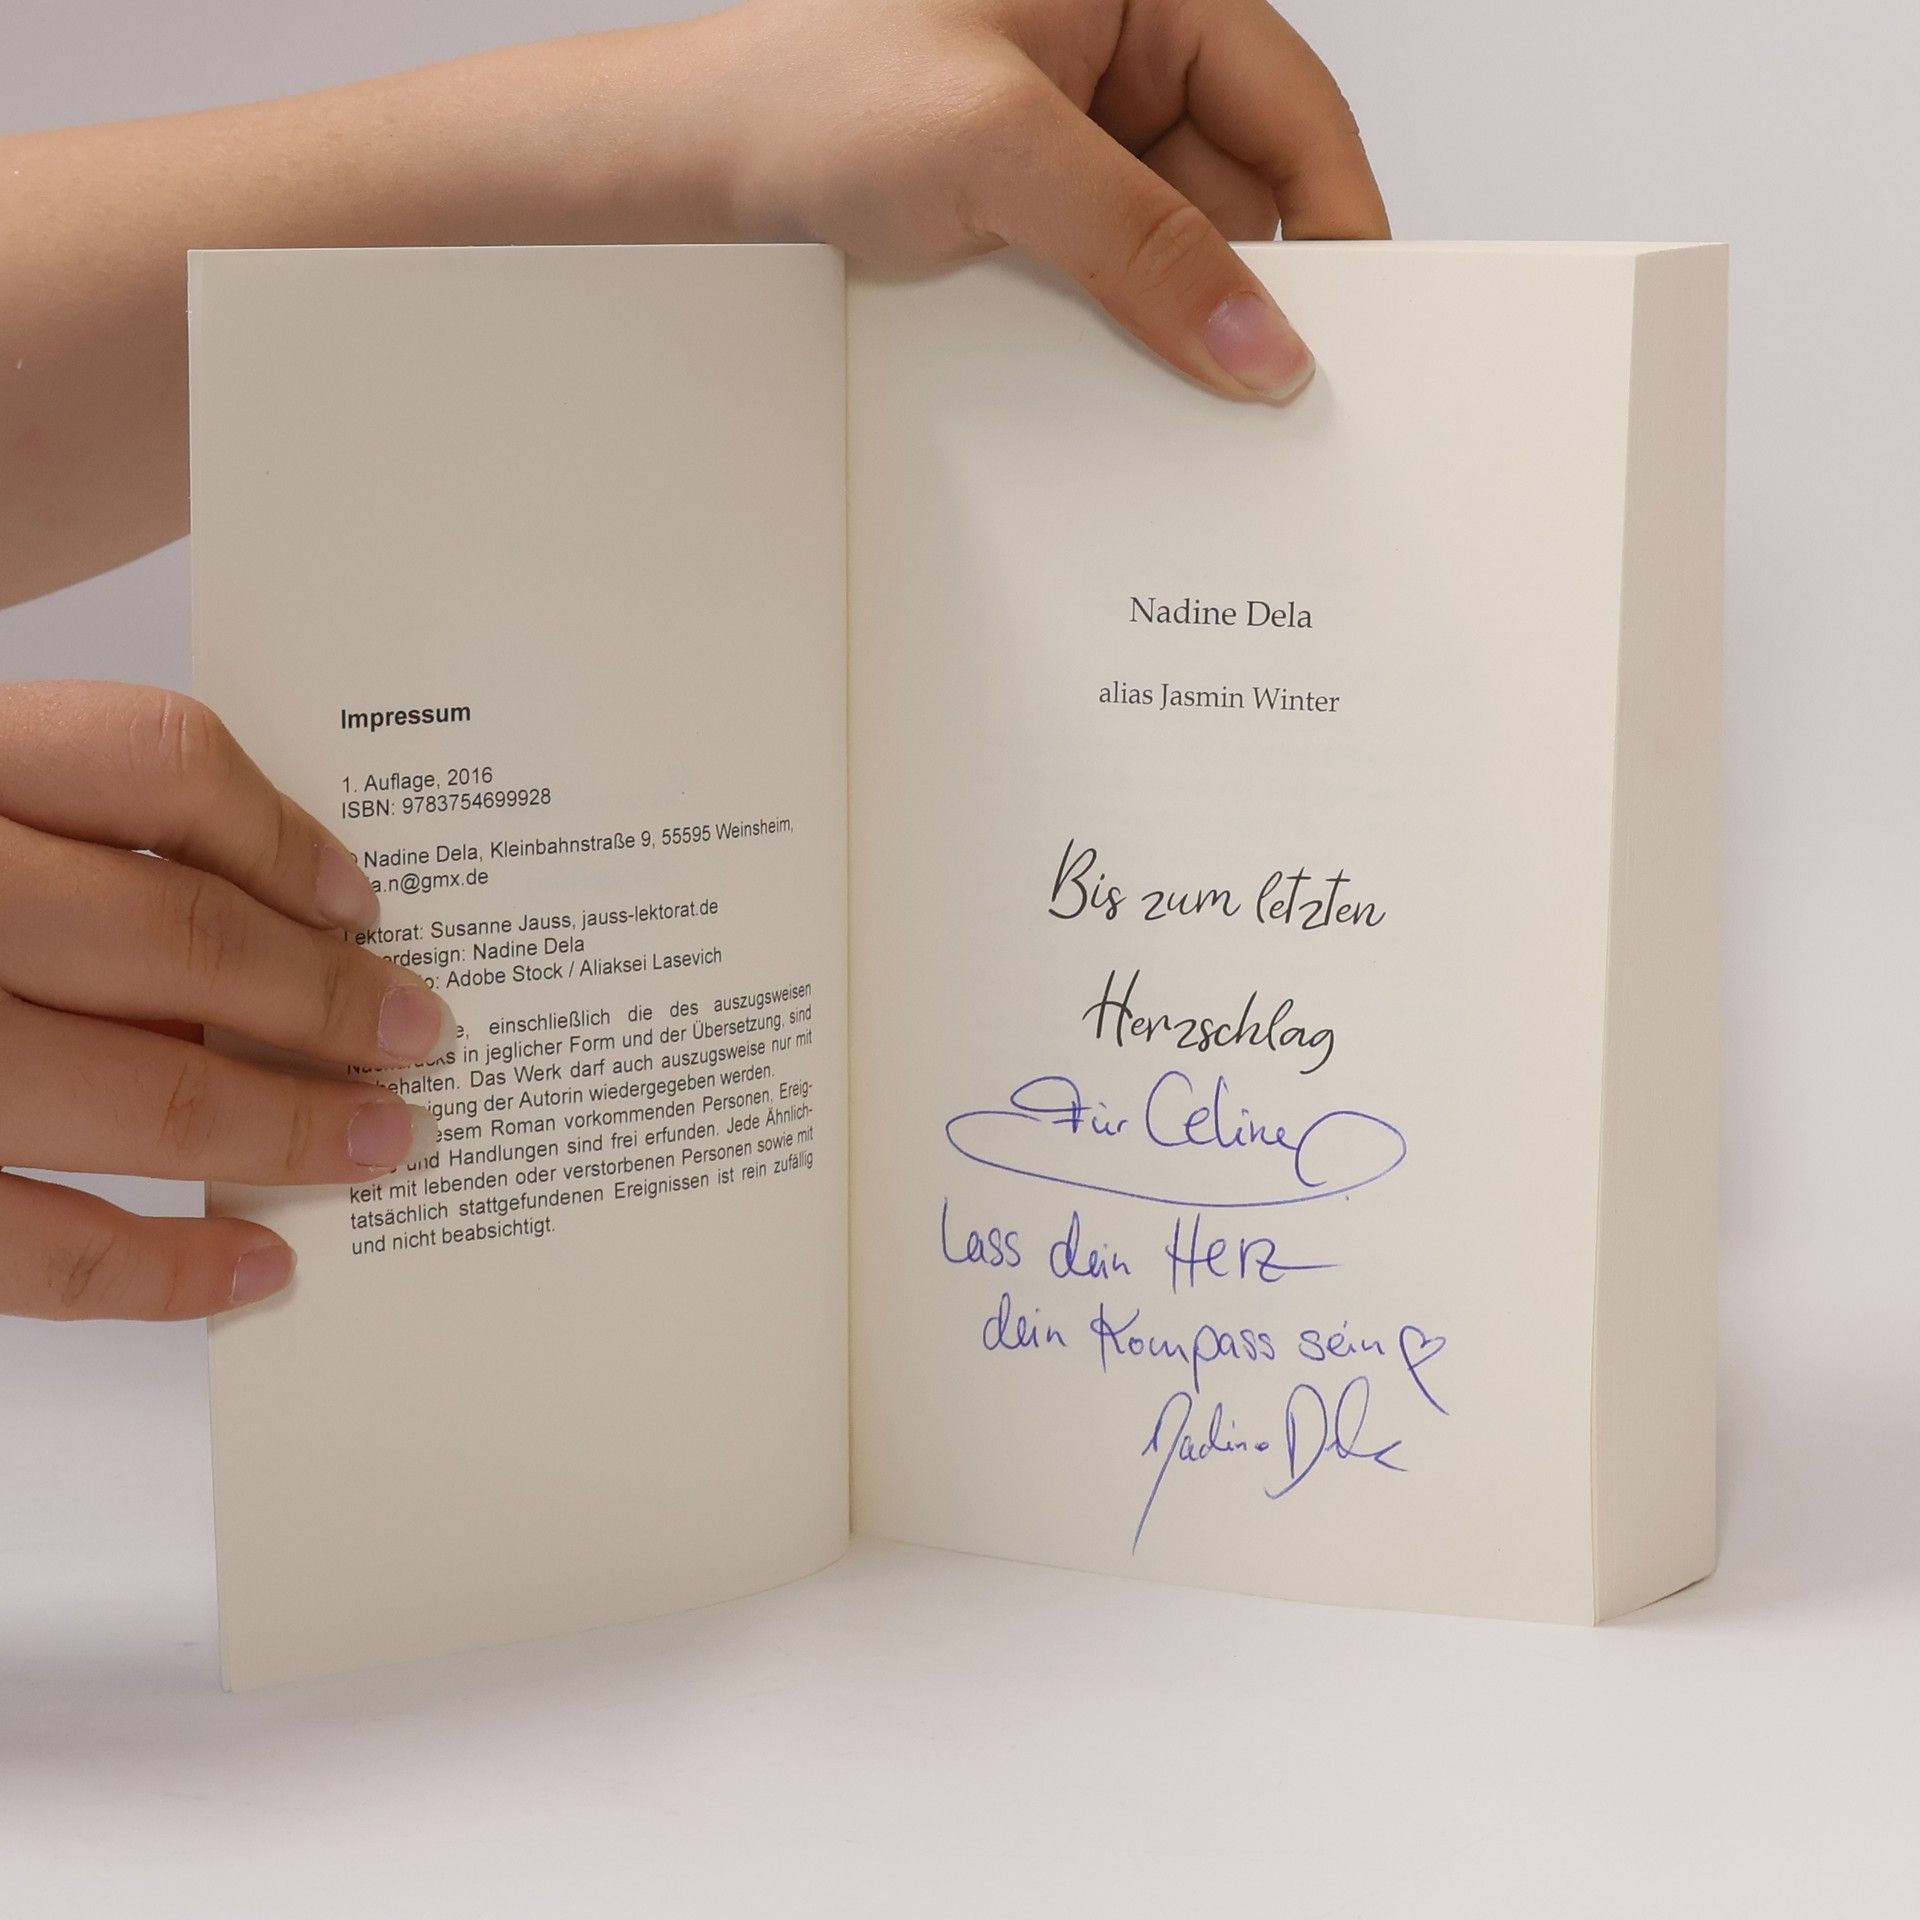 Impressum
1. Auflage, 2016
ISBN: 9783754699928
Nadine Dela, Kleinbahnstraße 9, 55595 Weinsheim,
a.n@gmx.de
ektorat: Susanne Jauss, jauss-lektorat.de
erdesign: Nadine Dela
o: Adobe Stock / Aliaksei Lasevich
e, einschließlich die des auszugsweisen
ks in jeglicher Form und der Übersetzung, sind
ehalten. Das Werk darf auch auszugsweise nur mit
igung der Autorin wiedergegeben werden.
esem Roman vorkommenden Personen, Ereig-
und Handlungen sind frei erfunden. Jede Ähnlich-
keit mit lebenden oder verstorbenen Personen sowie mit
tatsächlich stattgefundenen Ereignissen ist rein zufällig
und nicht beabsichtigt.
Nadine Dela
alias Jasmin Winter
Bis zum letzten
Herzschlag
Für Celine
Lass dein Herz
dein Kompass sein
Nadine Dela